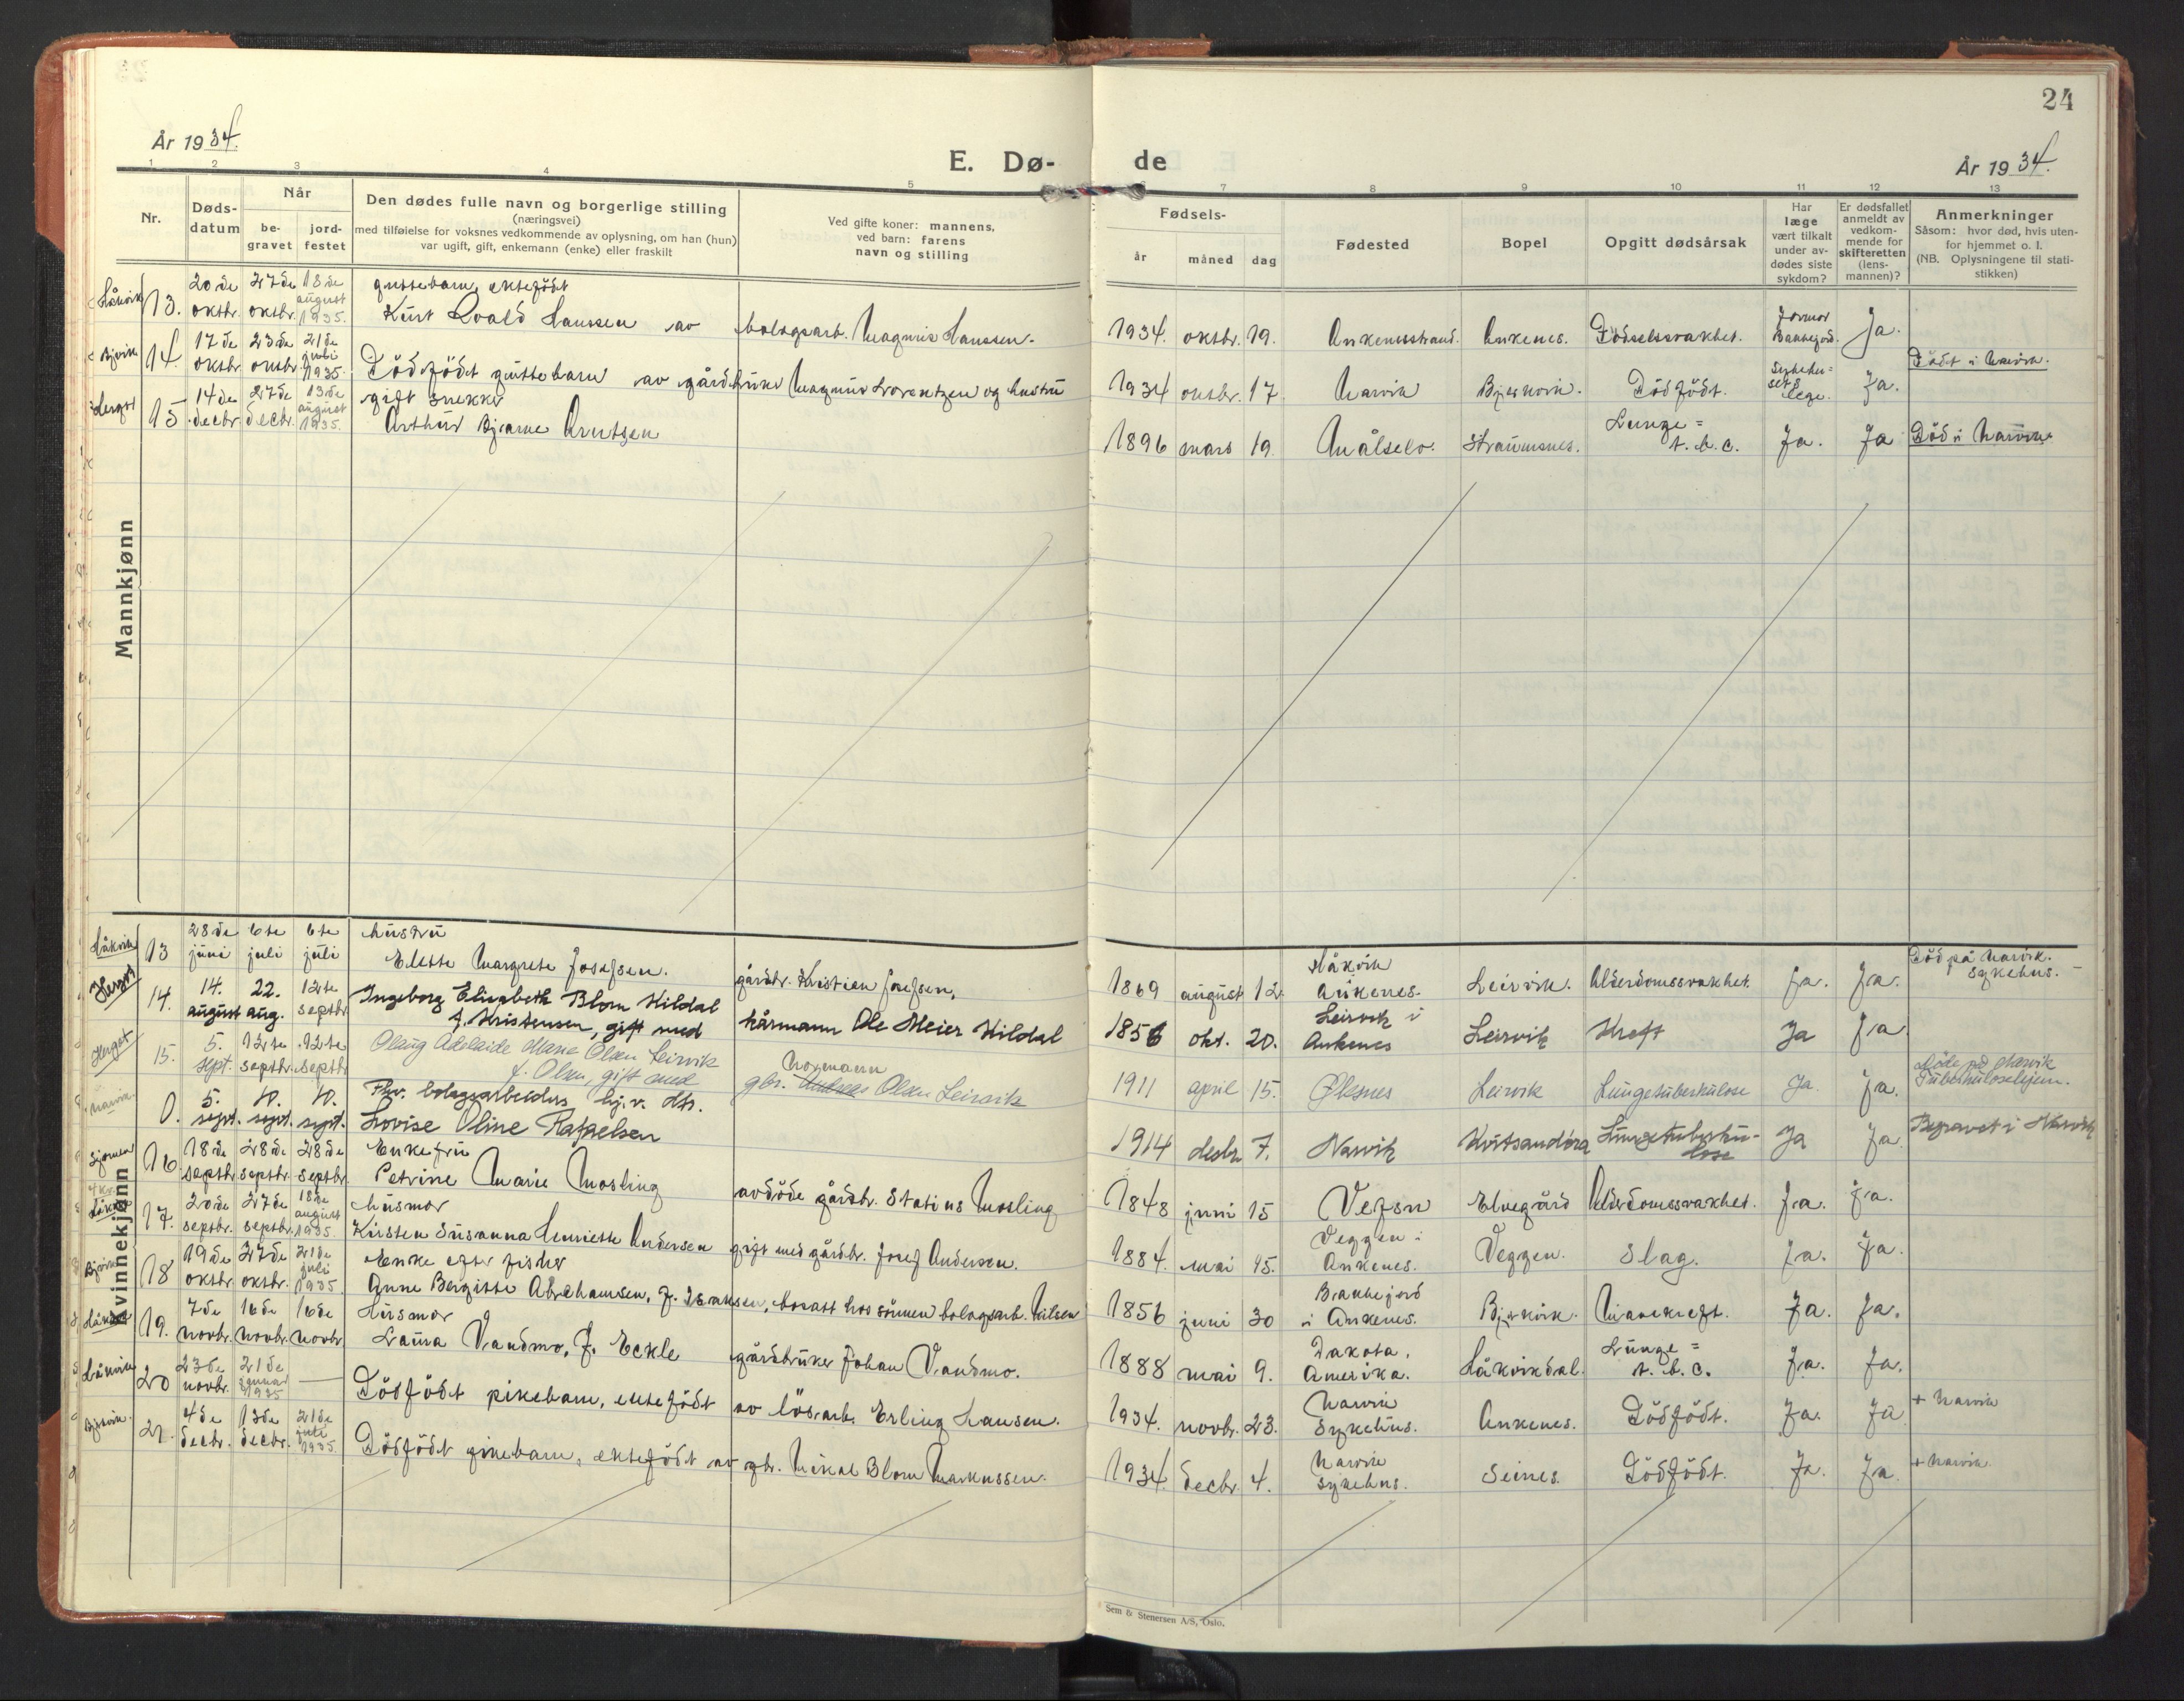 24
År 1934.
E. Dø-
de
År 1934.
1 2 3 4 5 6 7 8 9 10 11 12 13
Nr.
Døds-
datum
Når
be-
gravet
jord-
festet
Den dødes fulle navn og borgerlige stilling
(næringsvei)
med tilføielse for voksnes vedkommende av oplysning, om han (hun)
var ugift, gift, enkemann (enke) eller fraskilt
Ved gifte koner: mannens,
ved barn: farens
navn og stilling
Fødsels-
år måned dag
Fødested
Bopel
Opgitt dødsårsak
Har
læge
vært tilkalt
under av-
dødes siste
sykdom?
Er dødsfallet
anmeldt av
vedkom-
mende for
skifteretten
(lens-
mannen)?
Anmerkninger
Såsom: hvor død, hvis uten-
for hjemmet o. l.
(NB. Oplysningene til stati-
stikken)
Mannkjønn
Håkvik 13. 20de oktbr. 27de oktbr. 18de august 1935. guttebarn, ektefödt
Kurt Roald Hanssen av bolagsarb. Magnus Hanssen. 1934. oktbr. 19. Ankenesstrand. Ankenes. Födselssvakhet. Jormor Ja.
Bjvik 14. 17de oktbr. 23de oktbr. 21de juli 1935. Dödfödt guttebarn av gårdbruker Magnus Lorentzen og hustru 1934 oktbr. 17. Narvik Bjerkvik. Dödfödt. Ja. Födt i Narvik.
Herget 15 14de decbr. 27de decbr. 13de august 1935. gift snekker
Arthur Bjarne Arntsen 1896 mars 19. Målselv. Straumsnes. Lunge=
t.b.c. Ja. Ja Död i Narvik.
Kvinnekjønn
Håkvik 13 28de juni 6te juli 6te juli hustru
Elette Margrete Josefsen. gårdbr. Kristian Josefsen. 1869 august 12. Håkvik
Ankenes. Leirvik. Alderdomssvakhet. Ja. Ja. Död på Narvik
sykehus.
Herget 14. 14. august 22. aug. 12te septbr. Ingeborg Elisabeth Blom Hildal
f. Kristensen, gift med kårmann Ole Meier Hildal 1856 okt. 20. Leirvik i
Ankenes Leirvik Kreft Ja Ja
Herget 15. 5. sept. 12te septbr. 12te septbr. Olaug Adelaide Marie Olsen Leirvik
f. Olsen, gift med gbr. Normann Olsen Leirvik 1911 april 15. Leirvik Lungetuberkulose Ja. Ja. Döde på Narvik
Tuberkulosehjem.
Narvik 0. 5. sept. 10. sept. 10. sept. Fhv. bolagsarbeiders hj.v. dtr.
Lovise Oline Rafaelsen 1914 desbr. 7. Narvik Kvitsandöra Lungetuberku-
lose Ja Ja. Begravet i Narvik
Sjomen 16. 18de septbr. 28de septbr. 28de septbr. Enkefru
Petrine Marie Mosling avdöde gårdbr. Statius Mosling 1848 juni 15 Vefsn Elvegård Alderdomssvakhet. Ja. Ja.
Håkvik 17. 20de septbr. 27de septbr. 18de august 1935. husmor
Kirsten Susanna Henriette Andersen gift med gårdbr. Josef Andersen. 1884. mai 15. Veggen i
Ankenes. Veggen. Slag. Ja. Ja.
Bjvik 18 19de oktbr. 27de oktbr. 21de juli 1935. Enke efter fisker
Anne Bergitte Abrahamsen, f. Isaksen, bosatt hos sönnen bolagsarb. Nilsen 1856 juni 30 Bakkejord
i Ankenes. Bjerkvik. Mavekreft. Ja. Ja.
Håkvik 19. 7de novbr. 16de novbr. 16de novbr. Husmor
Laura Vandmo, f. Eckle gårdbruker Johan Vandmo. 1888 mai 9. Dakota,
Amerika. Håkvikdal. Lunge=
t.b.c. Ja. Ja.
Håkvik 20 23de novbr. 21de januar 1935 — Dödfödt pikebarn, ektefödt av lösarb. Erling Hansen. 1934. novbr. 23. Narvik
Sykehus. Ankenes. Dödfödt. Ja. Ja + Narvik
Bjvik 21. 4de decbr. 13de decbr. 21de juli 1935. Dödfödt pikebarn, ektefödt av gbr. Mikal Blom Markussen. 1934. decbr. 4. Narvik
Sykehus. Seines. Dödfödt. Ja. Ja + Narvik.
Sem & Stenersen A/S, Oslo.